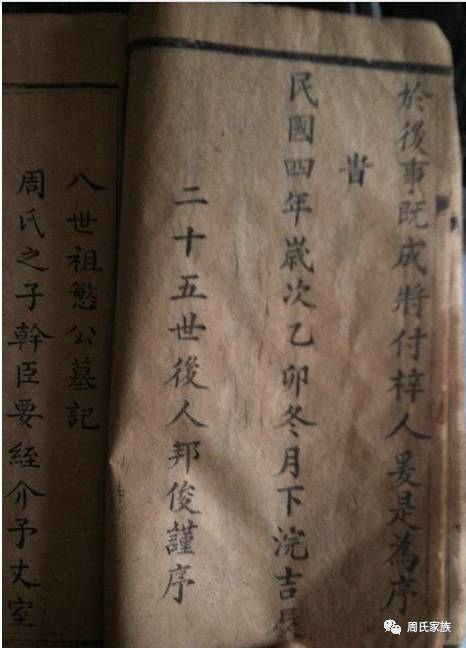 於後事既成將付梓人爰是為序
旹
民國四年歲次乙卯冬月下浣吉辰
二十五世後人邦俊謹序
八世祖慜公墓記
周氏之子幹臣要絰介予丈室
周氏家族